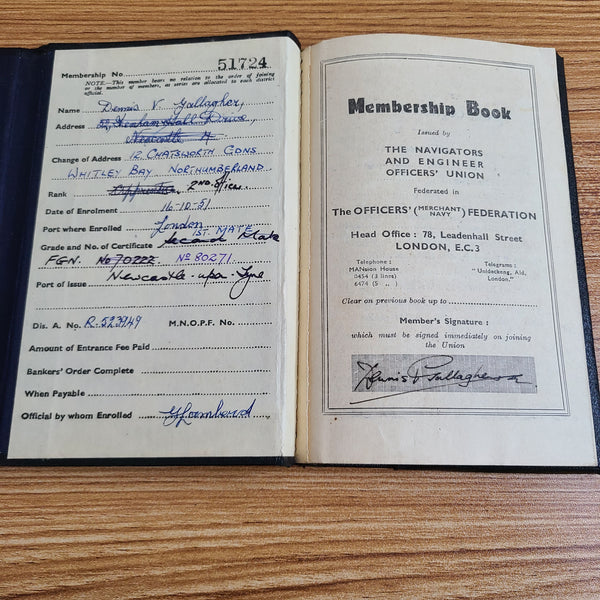 Membership No. 51724
NOTE.—This number bears no relation to the order of joining
or the number of members, as series are allocated to each district
official.
Name Dennis V. Gallagher,
Address Denham Hall Drive,
Newcastle
Change of Address 12 CHATSWORTH GDNS
WHITLEY BAY NORTHUMBERLAND
Rank Apprentice 2ND Officer.
Date of Enrolment 16-10-51
Port where Enrolled London
1ST MATE
Grade and No. of Certificate Second Mate
FGN. No 70222 No 80271
Port of Issue Newcastle-upon-Tyne
Dis. A. No. R.523949 M.N.O.P.F. No.
Amount of Entrance Fee Paid
Bankers' Order Complete
When Payable
Official by whom Enrolled
Membership Book
Issued by
THE NAVIGATORS
AND ENGINEER
OFFICERS' UNION
Federated in
The OFFICERS' (MERCHANT NAVY) FEDERATION
Head Office : 78, Leadenhall Street
LONDON, E.C.3
Telephone :
MANsion House
0454 (3 lines)
6474 (5 „ )
Telegrams :
Ald,
London."
Clear on previous book up to
Member's Signature :
which must be signed immediately on joining
the Union
Dennis V Gallagher